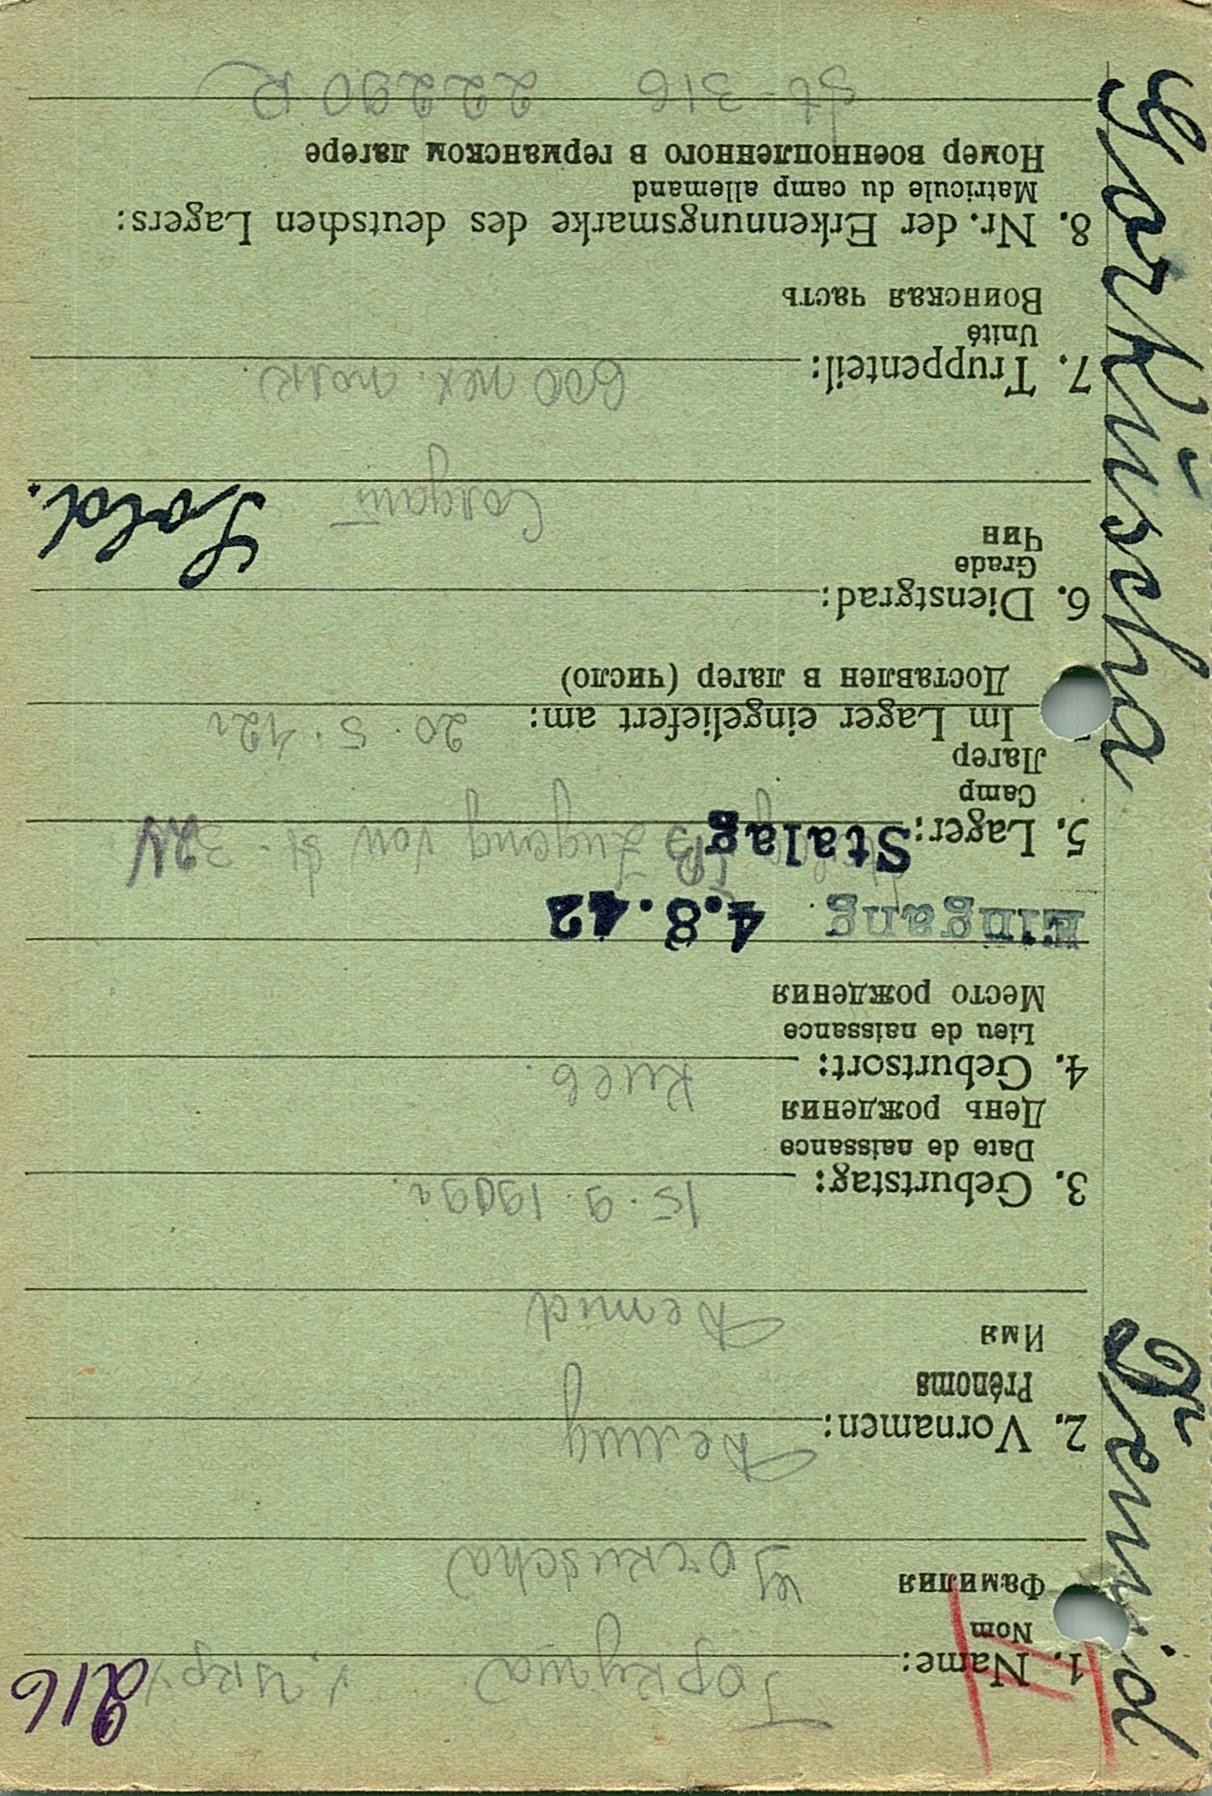 Garkuscha Demid
216
1. Name: Горкуша / Укр /
Nom
Фамилия
Gorkuscha
2. Vornamen: Демид
Prénoms
Имя
Demid
3. Geburtstag: 15.9.1909г.
Date de naissance
День рождения
4. Geburtsort: Киев.
Lieu de naissance
Место рождения
Eingang 4.8.42
5. Lager: Stalag Zugang von St.
Camp
Лагер
Im Lager eingeliefert am: 20.5.42г
Доставлен в лагер (число)
6. Dienstgrad:
Grade
Чин
Солдат Sold.
7. Truppenteil: 600 пех полк.
Unité
Воинская часть
8. Nr. der Erkennungsmarke des deutschen Lagers:
Matricule du camp allemand
Номер военнопленного в германском лагере
St-316 22290 R